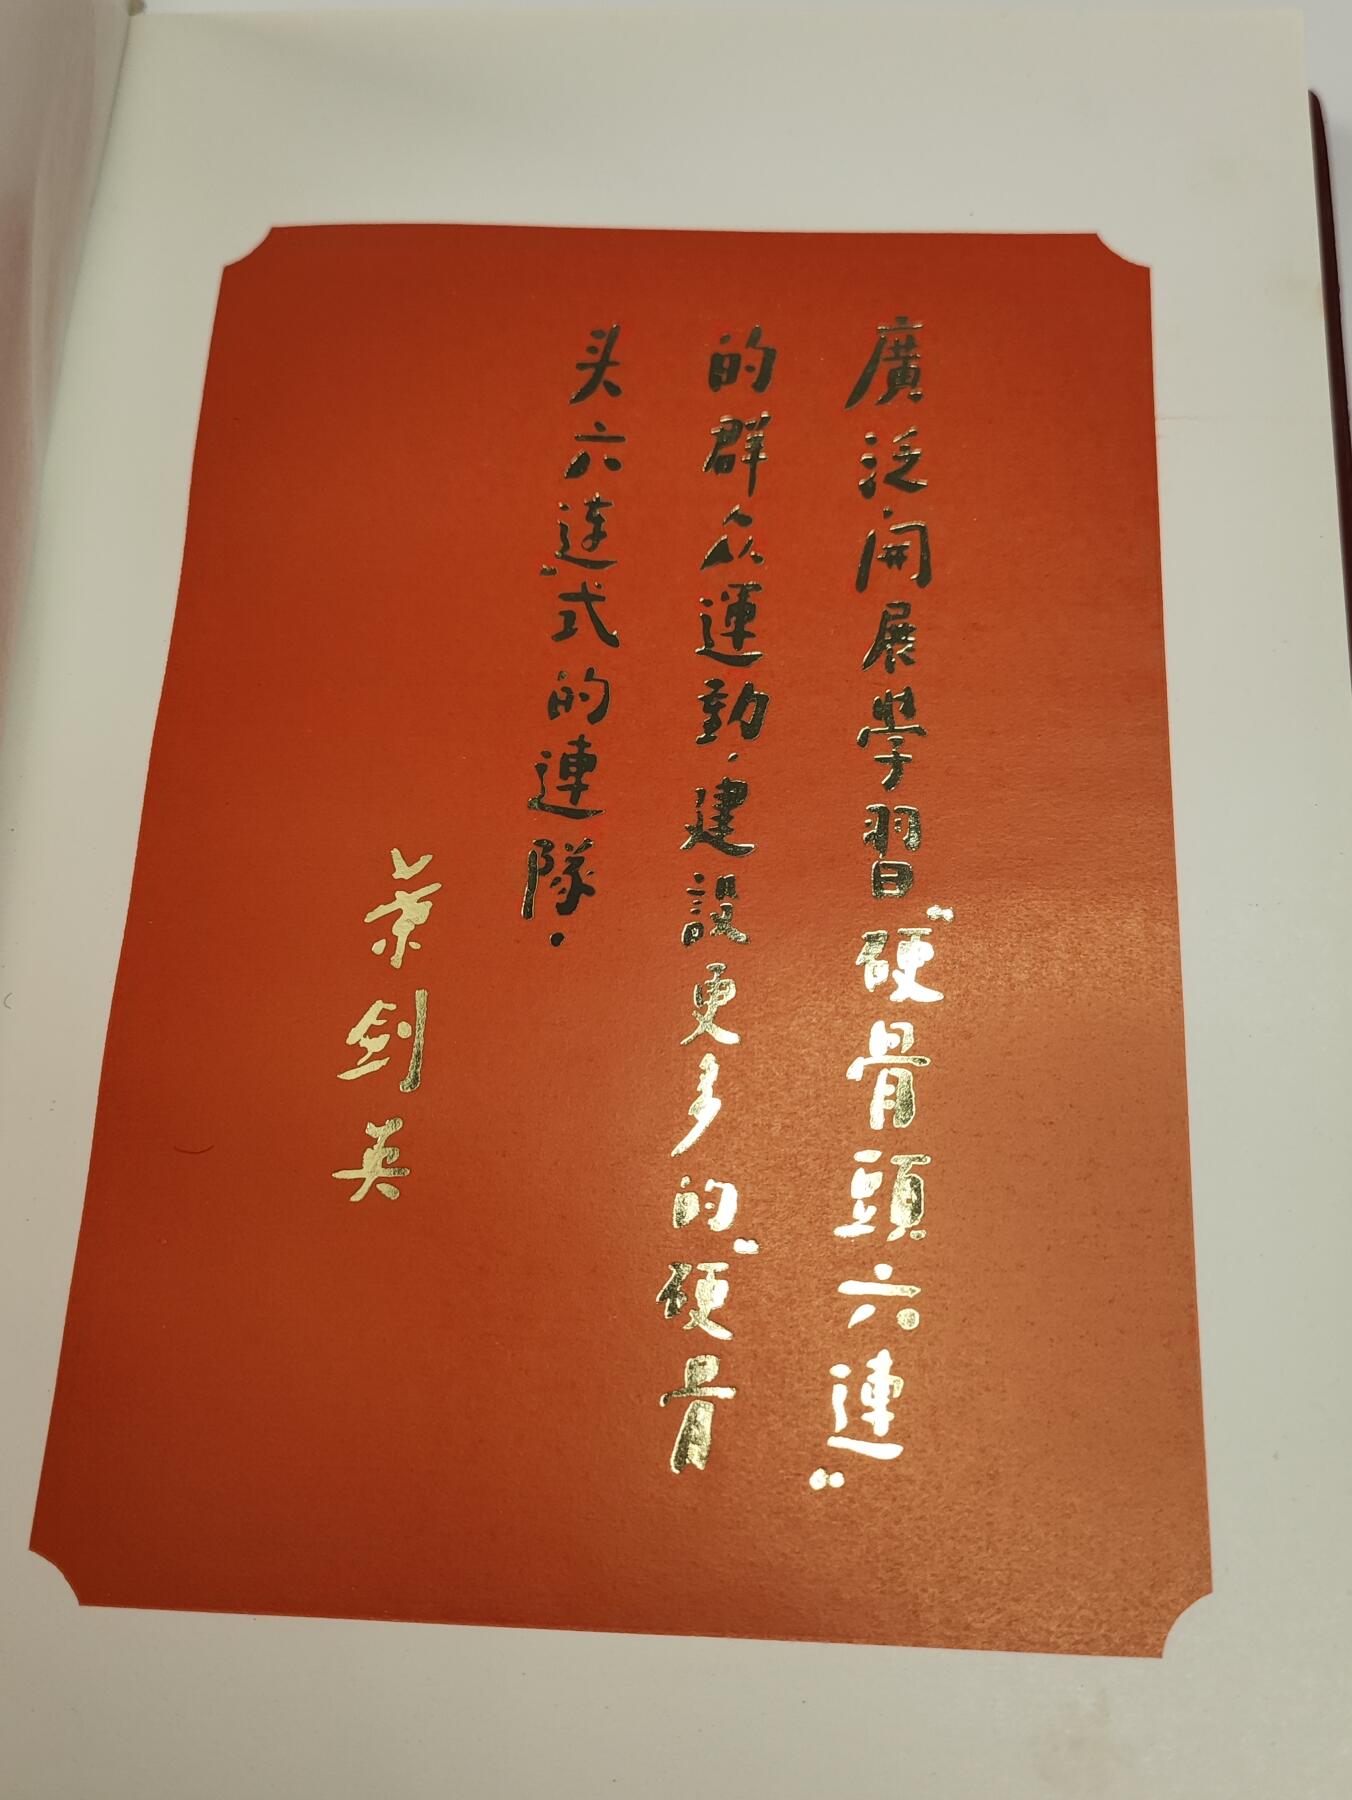 廣泛開展學習“硬骨頭六連”
的群众運動，建設更多的“硬骨
头六連”式的連隊．
葉剑英